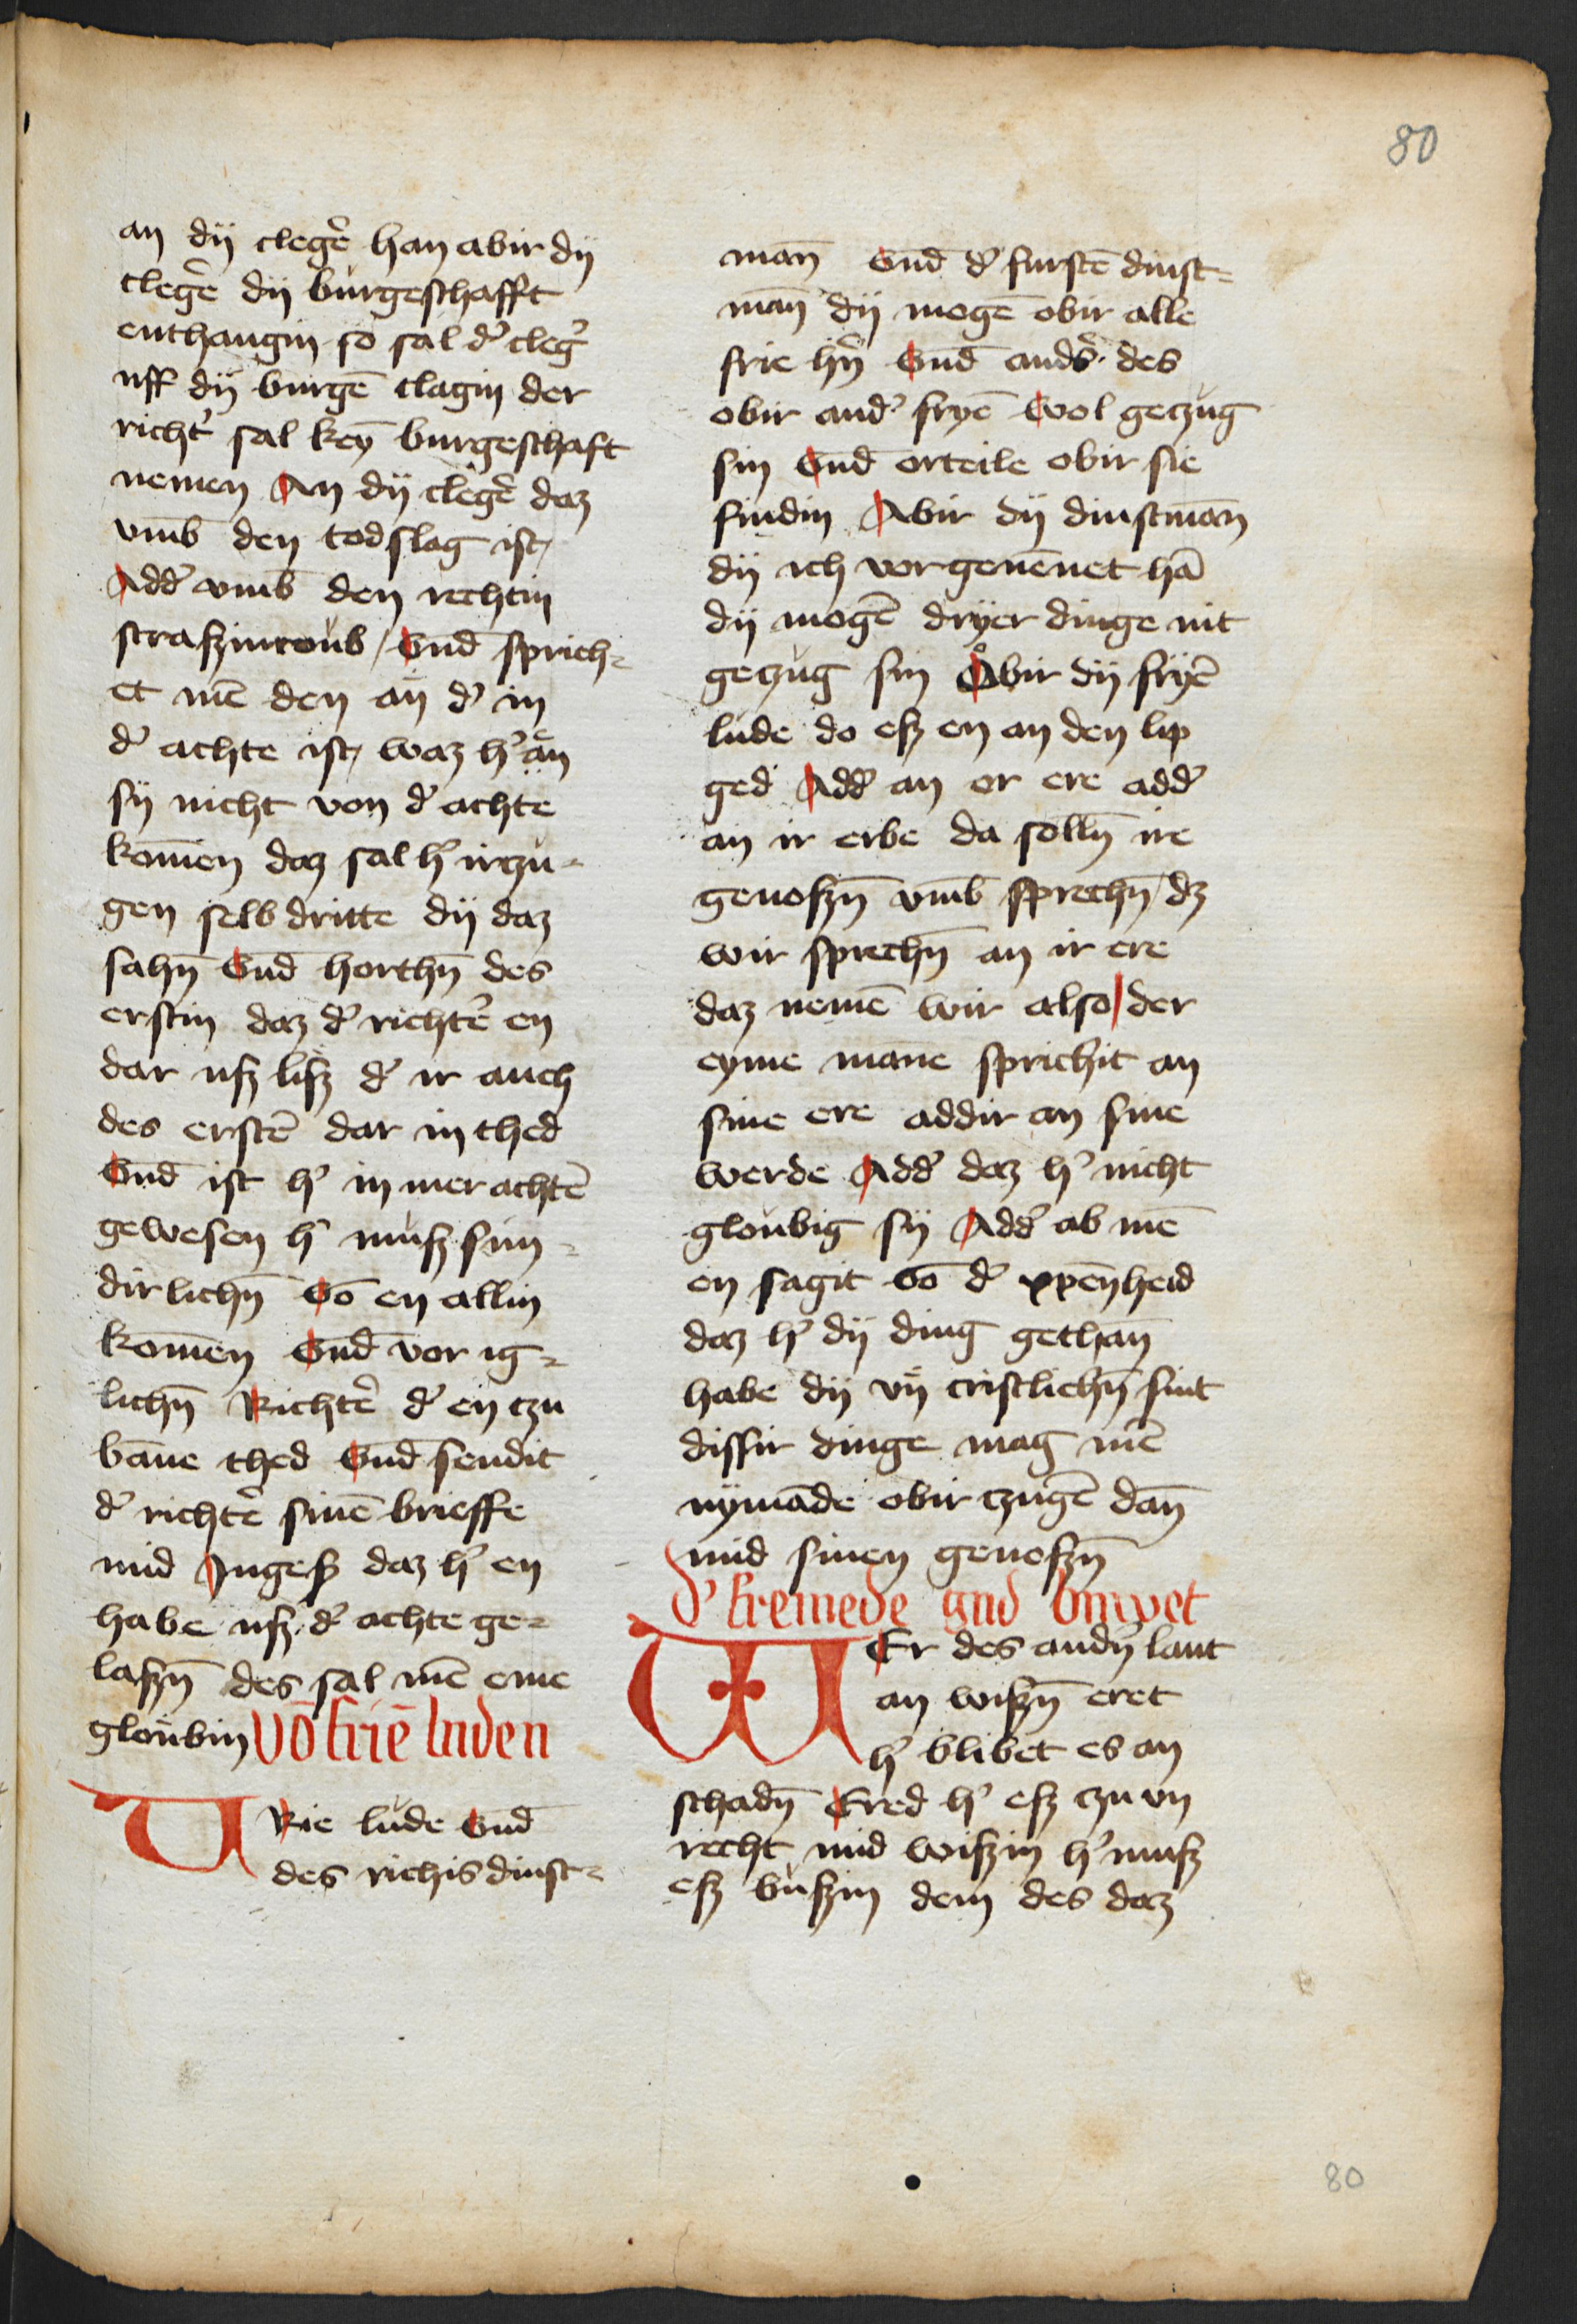 80
an dij clegē han abir dij
clegē dij burgeschafft
enthangin so sal d' cleg'
uff dij burgē clagin der
richt' sal keȳ burgeschaft
nemen An dij clegē daz
vmb den todslag ist /
Add' vmb den rechtin
straszinroub / Vnd sprich=
et mē den an d' in
d' achte ist / waz h' an
sij nicht von d' achte
kom̄en daz sal h' irzu=
gen selb dritte dij daz
sahn̄ Vnd horthn̄ des
erstin daz d' richt'e en
dar usz lisz d' ir auch
des erstē dar in thed
Vnd ist h' in mer achtē
gewesen h' musz sun=
dirlichn̄ Vō en allin
kom̄en Vnd vor ig=
lichn̄ Richt'e d' en tzu
bāne thed Vnd sendit
d' richt'e sinē brieffe
mid Ingesz daz h' en
habe usz d' achte ge=
laszn̄ des sal mē eme
gloubin Vō frie luden
VRie lude Vnd
des richis dinst=
man̄ Vnd d' furstē dinst=
man̄ dij mogē obir alle
frie hn̄ Vnd and's des
obir and' fryē Wol getzug
sin Vnd orteile obir sie
findin Abir dij dinstman̄
dij ich vorgenēnet hā
dij mogē dryer dinge nit
getzug sin Obir dij fryē
lude do esz en an den lip
ged Add' an or ere add'
an ir erbe da solln̄ ire
genoszn̄ vmb sprechn̄ dz
wir sprechn̄ an ir ere
daz nemē wir also / der
eyme mane sprichit an
sine ere addir an sine
werde Add' daz h' nicht
gloubig sij Add' ab mē
en sagit Vō d' xpēnheid
daz h' dij ding gethan̄
habe dij vn̄ cristlichn̄ sint
dissir dinge mag mē
nymāde obir tzugē dan̄
mid sinen genoszn̄
d' fremede gud buwet
WEr des andn̄ lant
an wiszn̄ eret
h' blibet es an
schadn̄ Ered h' esz tzu vn
recht mid wiszin h' musz
esz buszin dem des daz
80